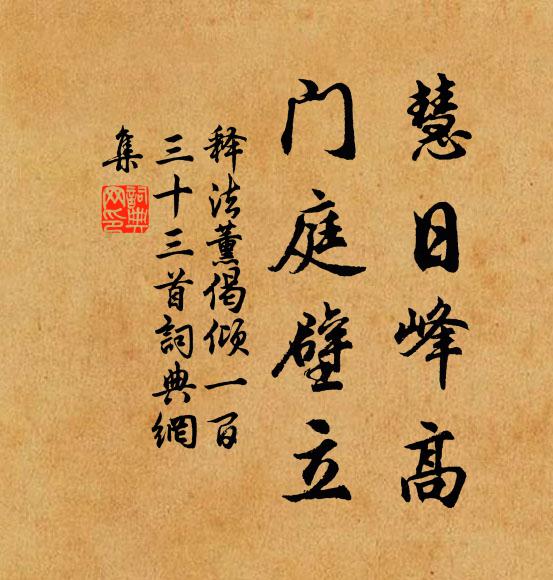 慧日峰高
门庭壁立
释法薰偈倾一百
三十三首詞典網
集
詞典网印